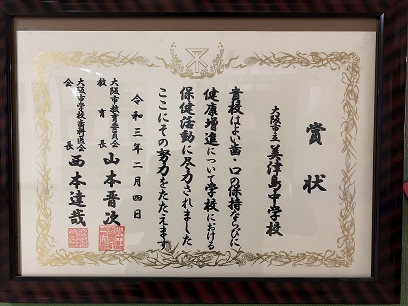 賞状
大阪市立 美津島中学校
貴校はよい歯・口の保持ならびに
健康増進について学校における
保健活動に尽力されました
ここにその努力をたたえます
令和三年二月四日
大阪市教育委員会
教育長 山本晋次
大阪市学校歯科医会
会長 西本達哉